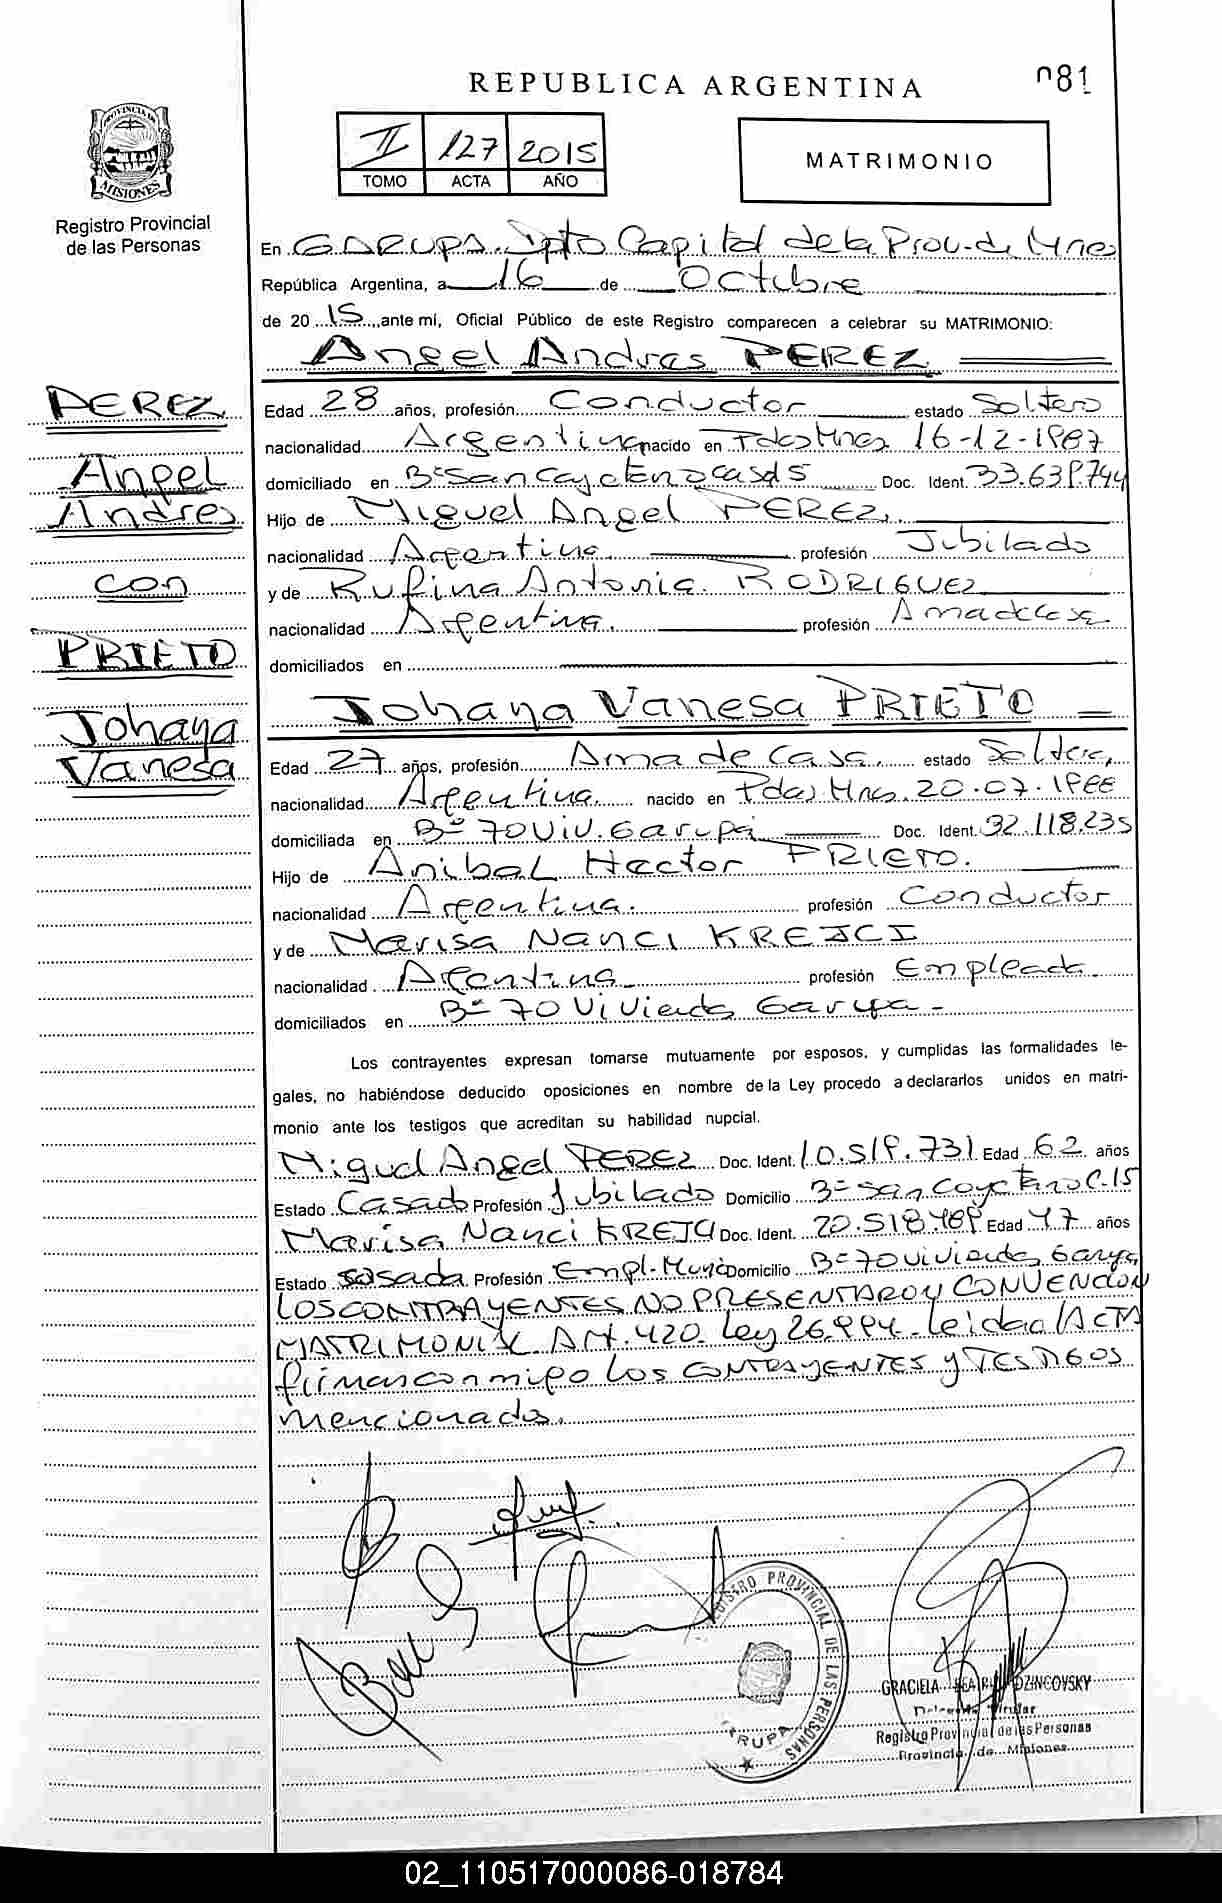 REPUBLICA ARGENTINA
081
PROVINCIA DE
MISIONES
Registro Provincial
de las Personas
II 127 2015
TOMO ACTA AÑO
MATRIMONIO
En GARUPA Dpto Capital de la Prov. de Mnes
República Argentina, a 16 de Octubre
de 2015, ante mí, Oficial Público de este Registro comparecen a celebrar su MATRIMONIO:
Angel Andres PEREZ
PEREZ
Angel
Andres
con
PRIETO
Johana
Vanesa
Edad 28 años, profesión Conductor estado Soltero
nacionalidad Argentina nacido en Pdas Mnes 16-12-1987
domiciliado en Bº San Cayetano casa 15 Doc. Ident. 33.639.744
Hijo de Miguel Angel PEREZ
nacionalidad Argentina profesión Jubilado
y de Rufina Antonia RODRIGUEZ
nacionalidad Argentina profesión Ama de casa
domiciliados en
Johana Vanesa PRIETO
Edad 27 años, profesión Ama de Casa estado Soltera,
nacionalidad Argentina nacido en Pdas Mnes. 20-07-1988
domiciliada en Bº 70 Viv. Garupa Doc. Ident. 32.118.235
Hijo de Anibal Hector PRIETO.
nacionalidad Argentina. profesión Conductor
y de Marisa Nanci KREJCI
nacionalidad Argentina profesión Empleada.
domiciliados en Bº 70 Viviendas Garupa -
Los contrayentes expresan tomarse mutuamente por esposos, y cumplidas las formalidades le-
gales, no habiéndose deducido oposiciones en nombre de la Ley procedo a declararlos unidos en matri-
monio ante los testigos que acreditan su habilidad nupcial.
Miguel Angel PEREZ Doc. Ident. 10.519.731 Edad 62 años
Estado Casado Profesión Jubilado Domicilio Bº San Cayetano C.15
Marisa Nanci KREJCI Doc. Ident. 20.518.489 Edad 47 años
Estado Profesión Empl. Munic Domicilio Bº 70 Viviendas Garupa
LOS CONTRAYENTES NO PRESENTARON CONVENCION
MATRIMONIAL Art. 420. Ley 26.994. Leida el ACTA
firman conmigo los CONTRAYENTES y TESTIGOS
mencionados.
REGISTRO PROVINCIAL DE LAS PERSONAS
GARUPA
GRACIELA
Delegada Titular
Registro Provincial de las Personas
Provincia de Misiones
02_110517000086-018784